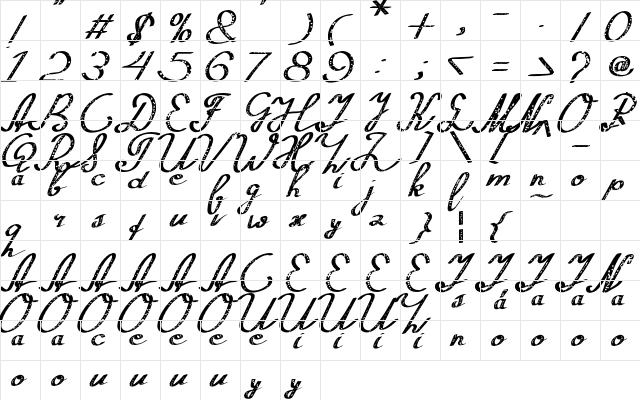 ! " # $ % & ' ) ( * + , - . / 0
1 2 3 4 5 6 7 8 9 : ; < = > ? @
A B C D E F G H I J K L M N O P
Q R S T U V W X Y Z ] \ [ ^ _
a b c d e f g h i j k l m n o p
q r s t u v w x y z } | { ~
A A A A A A C E E E E I I I I N
O O O O O U U U U Y s á a a a
a a c e e e e i i i i n o o o
o o u u u u y y